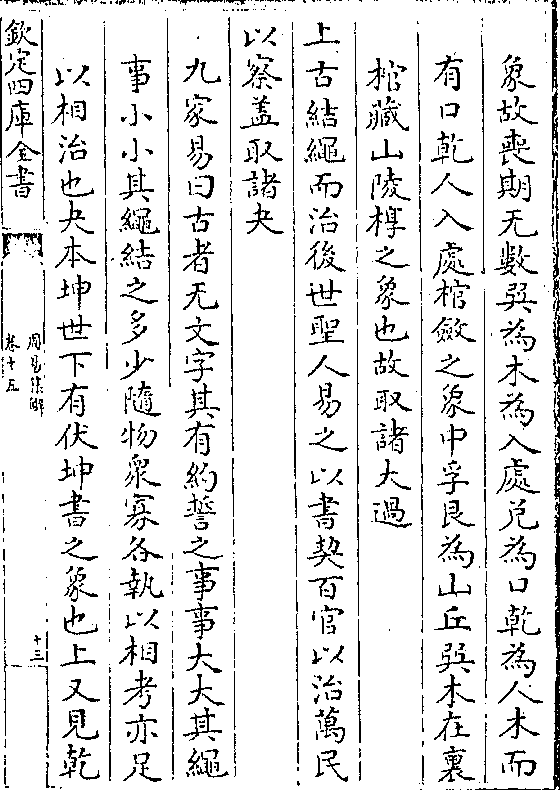 象故喪期无數巽為木為入處兑為口乾為人木而
有口乾人入處棺斂之象中孚艮為山丘巽木在裏
棺藏山陵椁之象也故取諸大過
上古結繩而治後世聖人易之以書契百官以治萬民
以察盖取諸夬
九家易曰古者无文字其有約誓之事事大大其繩
事小小其繩結之多少隨物衆寡各執以相考亦足
以相治也夬本坤世下有伏坤書之象也上又見乾
欽定四庫全書
周易集解
卷十五
十三